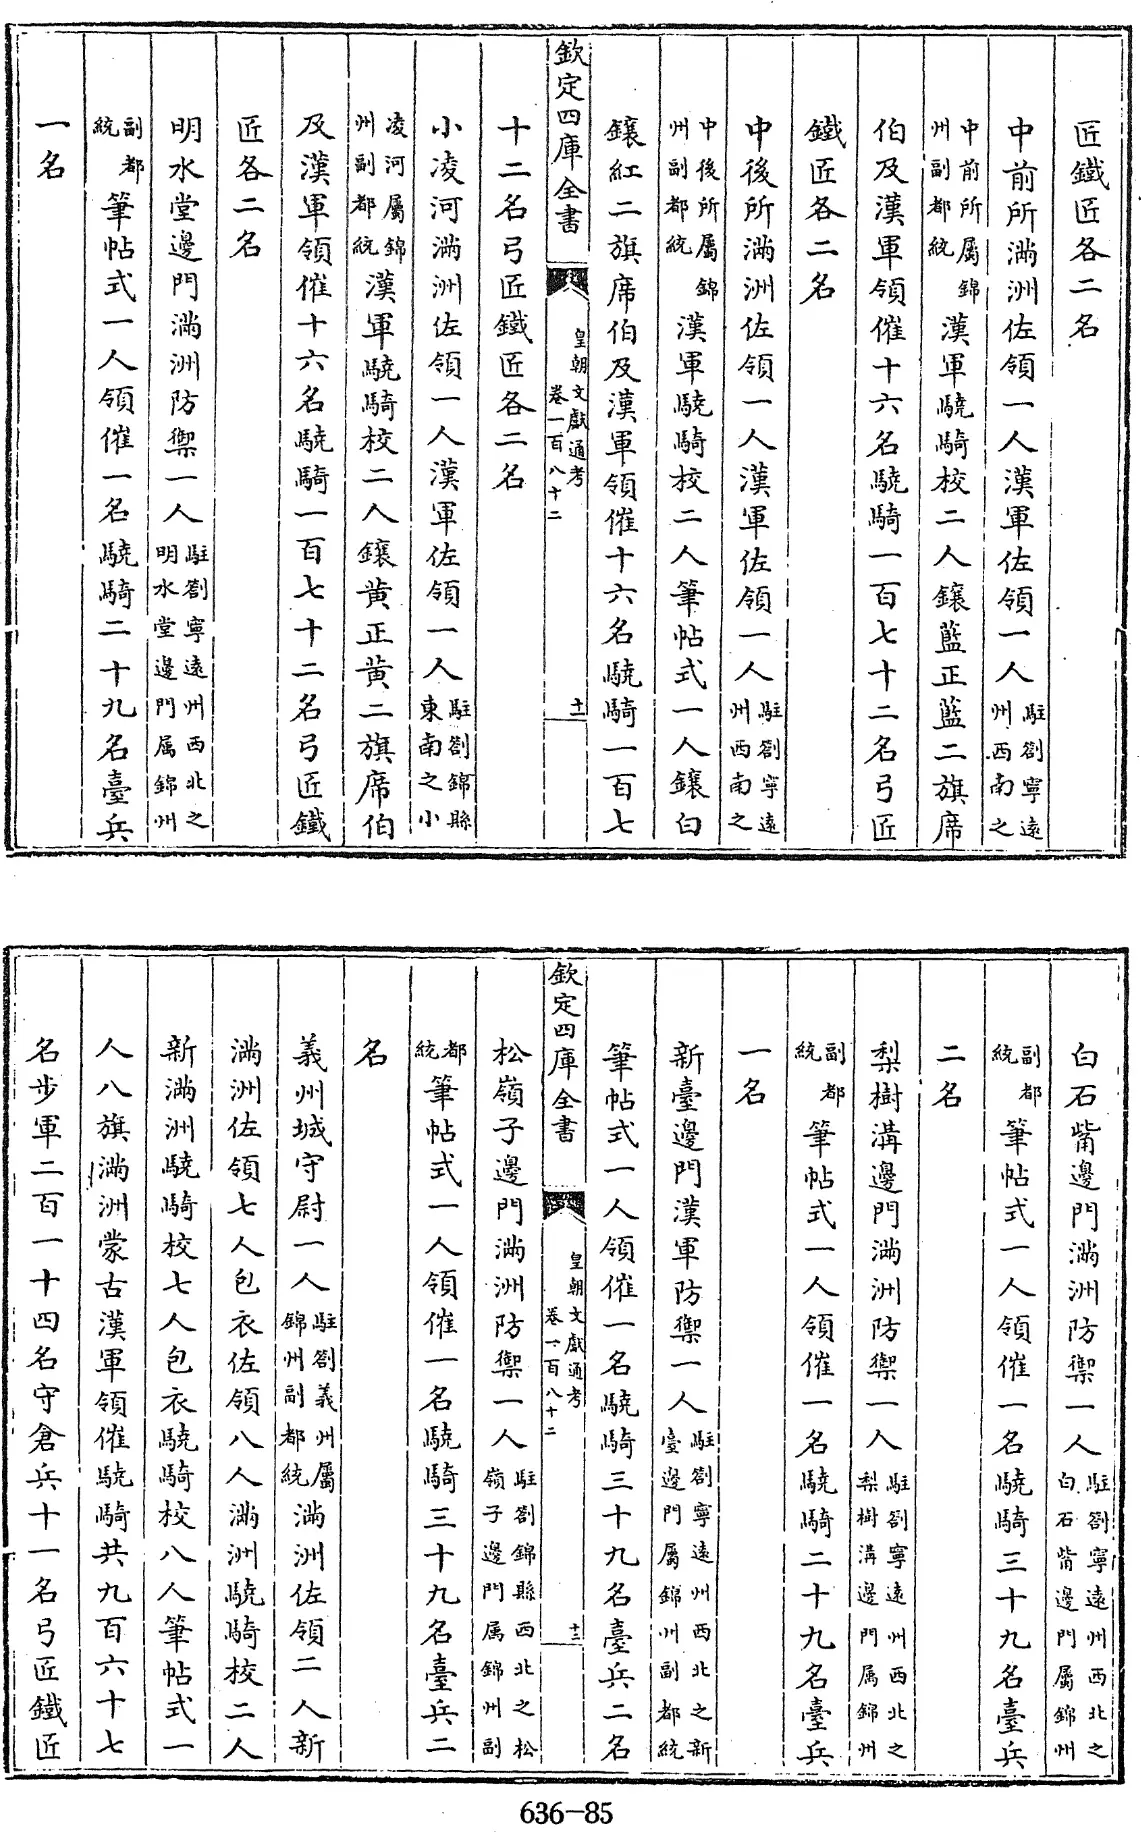 匠鐵匠各二名
中前所滿洲佐領一人漢軍佐領一人駐劄寧遠州西南之
中前所屬錦州副都統漢軍驍騎校二人鑲藍正藍二旗席
伯及漢軍領催十六名驍騎一百七十二名弓匠
鐵匠各二名
中後所滿洲佐領一人漢軍佐領一人駐劄寧遠州西南之
中後所屬錦州副都統漢軍驍騎校二人筆帖式一人鑲白
鑲紅二旗席伯及漢軍領催十六名驍騎一百七
欽定四庫全書 皇朝文獻通考卷一百八十二 十二
十二名弓匠鐵匠各二名
小凌河滿洲佐領一人漢軍佐領一人駐劄錦縣東南之小
凌河屬錦州副都統漢軍驍騎校二人鑲黃正黃二旗席伯
及漢軍領催十六名驍騎一百七十二名弓匠鐵
匠各二名
明水堂邊門滿洲防禦一人駐劄寧遠州西北之明水堂邊門属錦州
副都統筆帖式一人領催一名驍騎二十九名臺兵
一名
白石觜邊門滿洲防禦一人駐劄寧遠州西北之白石觜邊門屬錦州
副都統筆帖式一人領催一名驍騎三十九名臺兵
二名
梨樹溝邊門滿洲防禦一人駐劄寧遠州西北之梨樹溝邊門属錦州
副都統筆帖式一人領催一名驍騎二十九名臺兵
一名
新臺邊門漢軍防禦一人駐劄寧遠州西北之新臺邊門屬錦州副都統
筆帖式一人領催一名驍騎三十九名臺兵二名
欽定四庫全書 皇朝文獻通考卷一百八十二 十三
松嶺子邊門滿洲防禦一人駐劄錦縣西北之松嶺子邊門属錦州副
都統筆帖式一人領催一名驍騎三十九名臺兵二
名
義州城守尉一人駐劄義州屬錦州副都統滿洲佐領二人新
滿洲佐領七人包衣佐領八人滿洲驍騎校二人
新滿洲驍騎校七人包衣驍騎校八人筆帖式一
人八旗滿洲蒙古漢軍領催驍騎共九百六十七
名步軍二百一十四名守倉兵十一名弓匠鐵匠
636-85